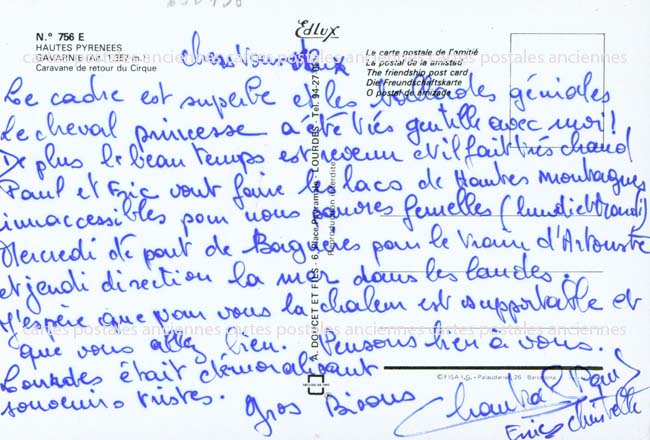 N.º 756 E
HAUTES PYRENEES
GAVARNIE (Alt. 1.357 m.)
Caravane de retour du Cirque
Edlux
La carte postale de l'amitié
La postal de la amistad
The friendship post card
Die Freundschaftskarte
O postal de amizade
cartes postales anciennes cartes postales anciennes cartes postales anciennes
Chers vous deux
Le cadre est superbe et les ballades géniales
Le cheval princesse a été très gentille avec moi!
De plus le beau temps est revenu et il fait très chaud
Paul et Eric vont faire le lacs de Hautes montagnes
innaccessibles pour nous pauvres femelles (lundi et mardi)
Mercredi de pont de Bagnères pour le train d'Artouste
et jeudi direction la mer dans les landes.
J'espère que pour vous la chaleur est supportable et
que vous allez bien. Pensons bien à vous.
Lourdes était démoralisant
souvenirs tristes. Gros Bisous
Chantal Paul
Eric Christelle
A. DOUCET ET FILS - 6, Place Peyramale - LOURDES - Tel. 94-27-
Reproduction interdite
cartes postales anciennes cartes postales anciennes cartes postales anciennes
© FISA I.G. - Palaudarias, 26 - Barcelona